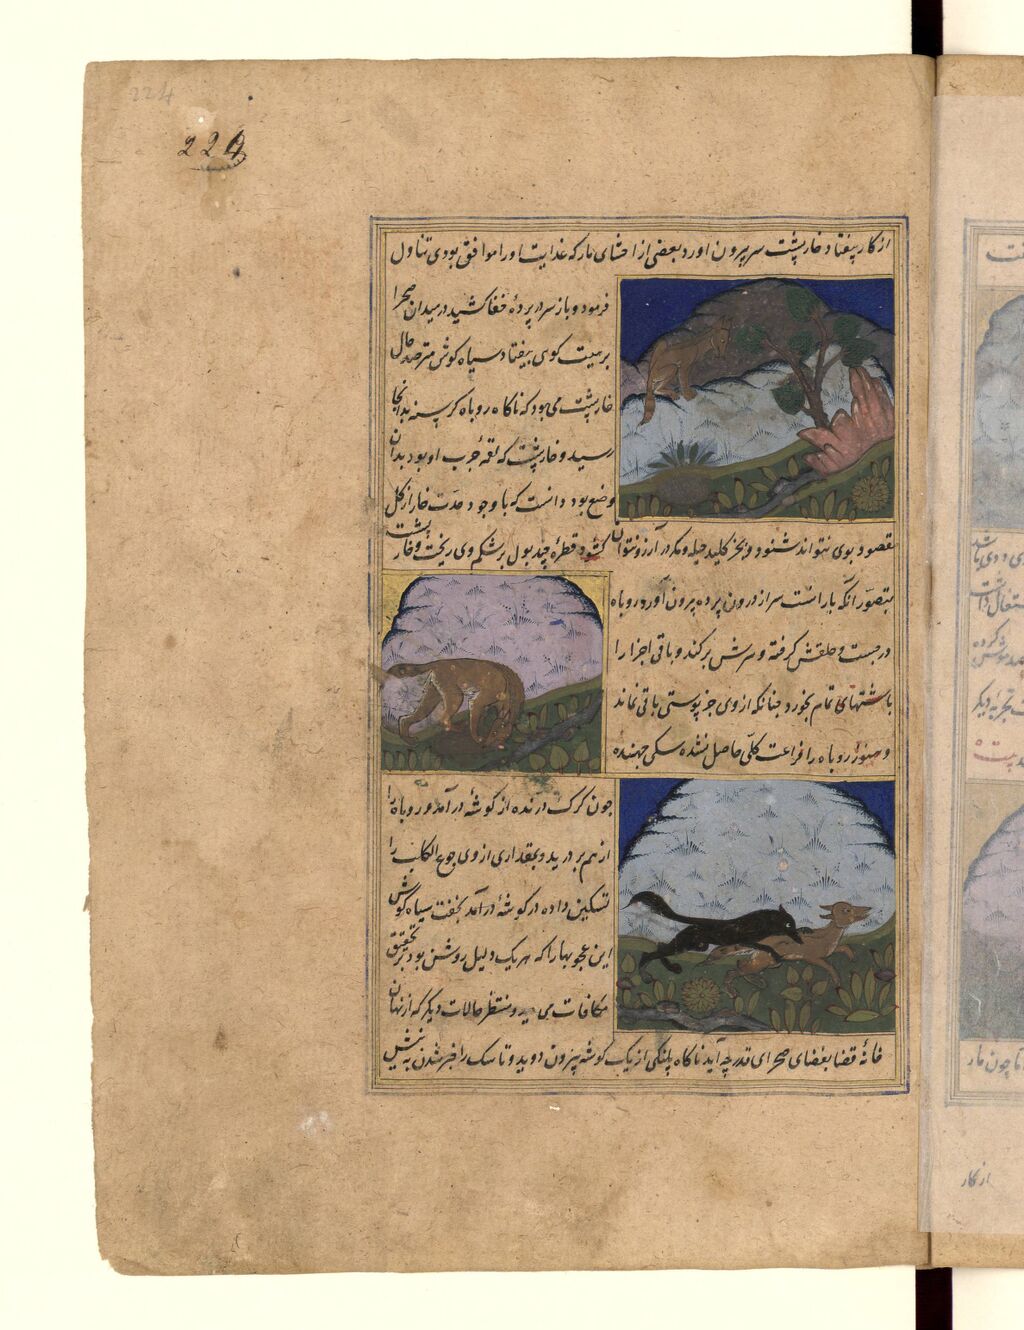 224
224
از کار بیفتاد خارپشت سر بیرون آورد بعضی از احشای مار که غذایت او را موافق بودی تناول
فرمود و باز سر در پردهٔ خفا کشید در میدان صحرا
بر هیئت کوی بیفتاد سیاه کوش مترصد حال
خارپشت می بود که ناکاه روباه کرسنه بدانجا
رسید و خارپشت که لقمهٔ چرب او بود بدان
وضع بود دانست که با وجود حدت خار از کل
مقصود بوی نتواند شنود و بجز کلید حیله و مکر در آرزو نتوان کشود قطرهٔ چند بول بر شکم وی ریخت و خارپشت
بتصور آنکه بارانست سر از درون پرده بیرون آورد روباه
در جست و حلقش کرفته و سرش بر کند و باقی اجزا را
باشتهای تمام بخورد چنانکه از وی جز پوستی باقی نماند
و هنوز روباه را فراغت کلی حاصل نشده سکی جهنده
چون کرک درنده از کوشهٔ در آمد و روباه را
از هم بر درید و بمقداری از وی جوع الکلب را
تسکین داده در کوشهٔ در آمد بخفت سیاه کوش
این عجوبها را که هر یک دلیل روشن بود بر تحقیق
مکافات می دید و منتظر حالات دیکر که از نهان
خانهٔ قضا بفضای صحرای قدر چه آید ناکاه پلنکی از یک کوشه بیرون دوید و تا سک را خبر شدن به نیش
از کار